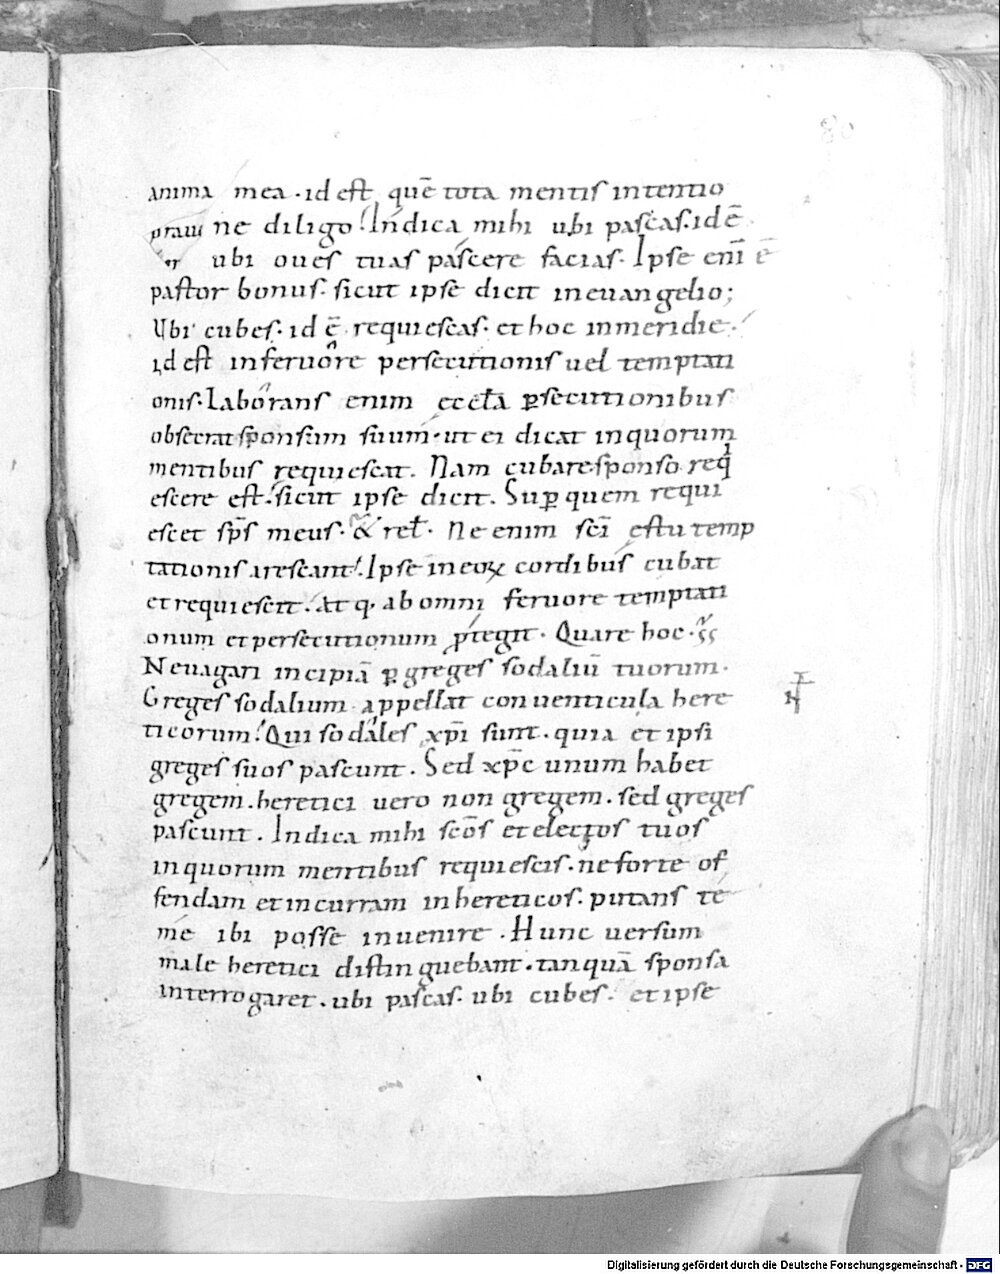 80
anima mea · id est quē tota mentis intentio
ne diligo! Indica mihi ubi pascas. id ē
ubi oues tuas pascere facias. Ipse enī ē
pastor bonus. sicut ipse dicit in euangelio;
Ubi cubes. id ē requiescas. et hoc in meridie.
id est in feruore persecutionis uel temptati
onis. Laborans enim eccl̄a ꝑsecutionibus
obsecrat sponsum suum. ut ei dicat in quorum
mentibus requiescat. Nam cubare sponso reqi
escere est. sicut ipse dicit. Suꝑ quem requi
escet sp̄s meus. & rel̄. Ne enim sc̄i estu temp
tationis arescant! Ipse in eoꝝ cordibus cubat
et requiescit. Atq; ab omni feruore temptati
onum et persecutionum ꝓtegit. Quare hoc.
Ne uagari incipiā ꝑ greges sodaliū tuorum.
Greges sodalium appellat conuenticula here
ticorum! Qui sodales xp̄i sunt. quia et ipsi
greges suos pascunt. Sed xp̄c unum habet
gregem. heretici uero non gregem. sed greges
pascunt. Indica mihi sc̄os et electos tuos
in quorum mentibus requiescis. ne forte of
fendam et incurram in hereticos. putans te
me ibi posse inuenire. Hunc uersum
male heretici distinguebant. tanquā sponsa
interrogaret. ubi pascas. ubi cubes. et ipse
Digitalisierung gefördert durch die Deutsche Forschungsgemeinschaft - DFG